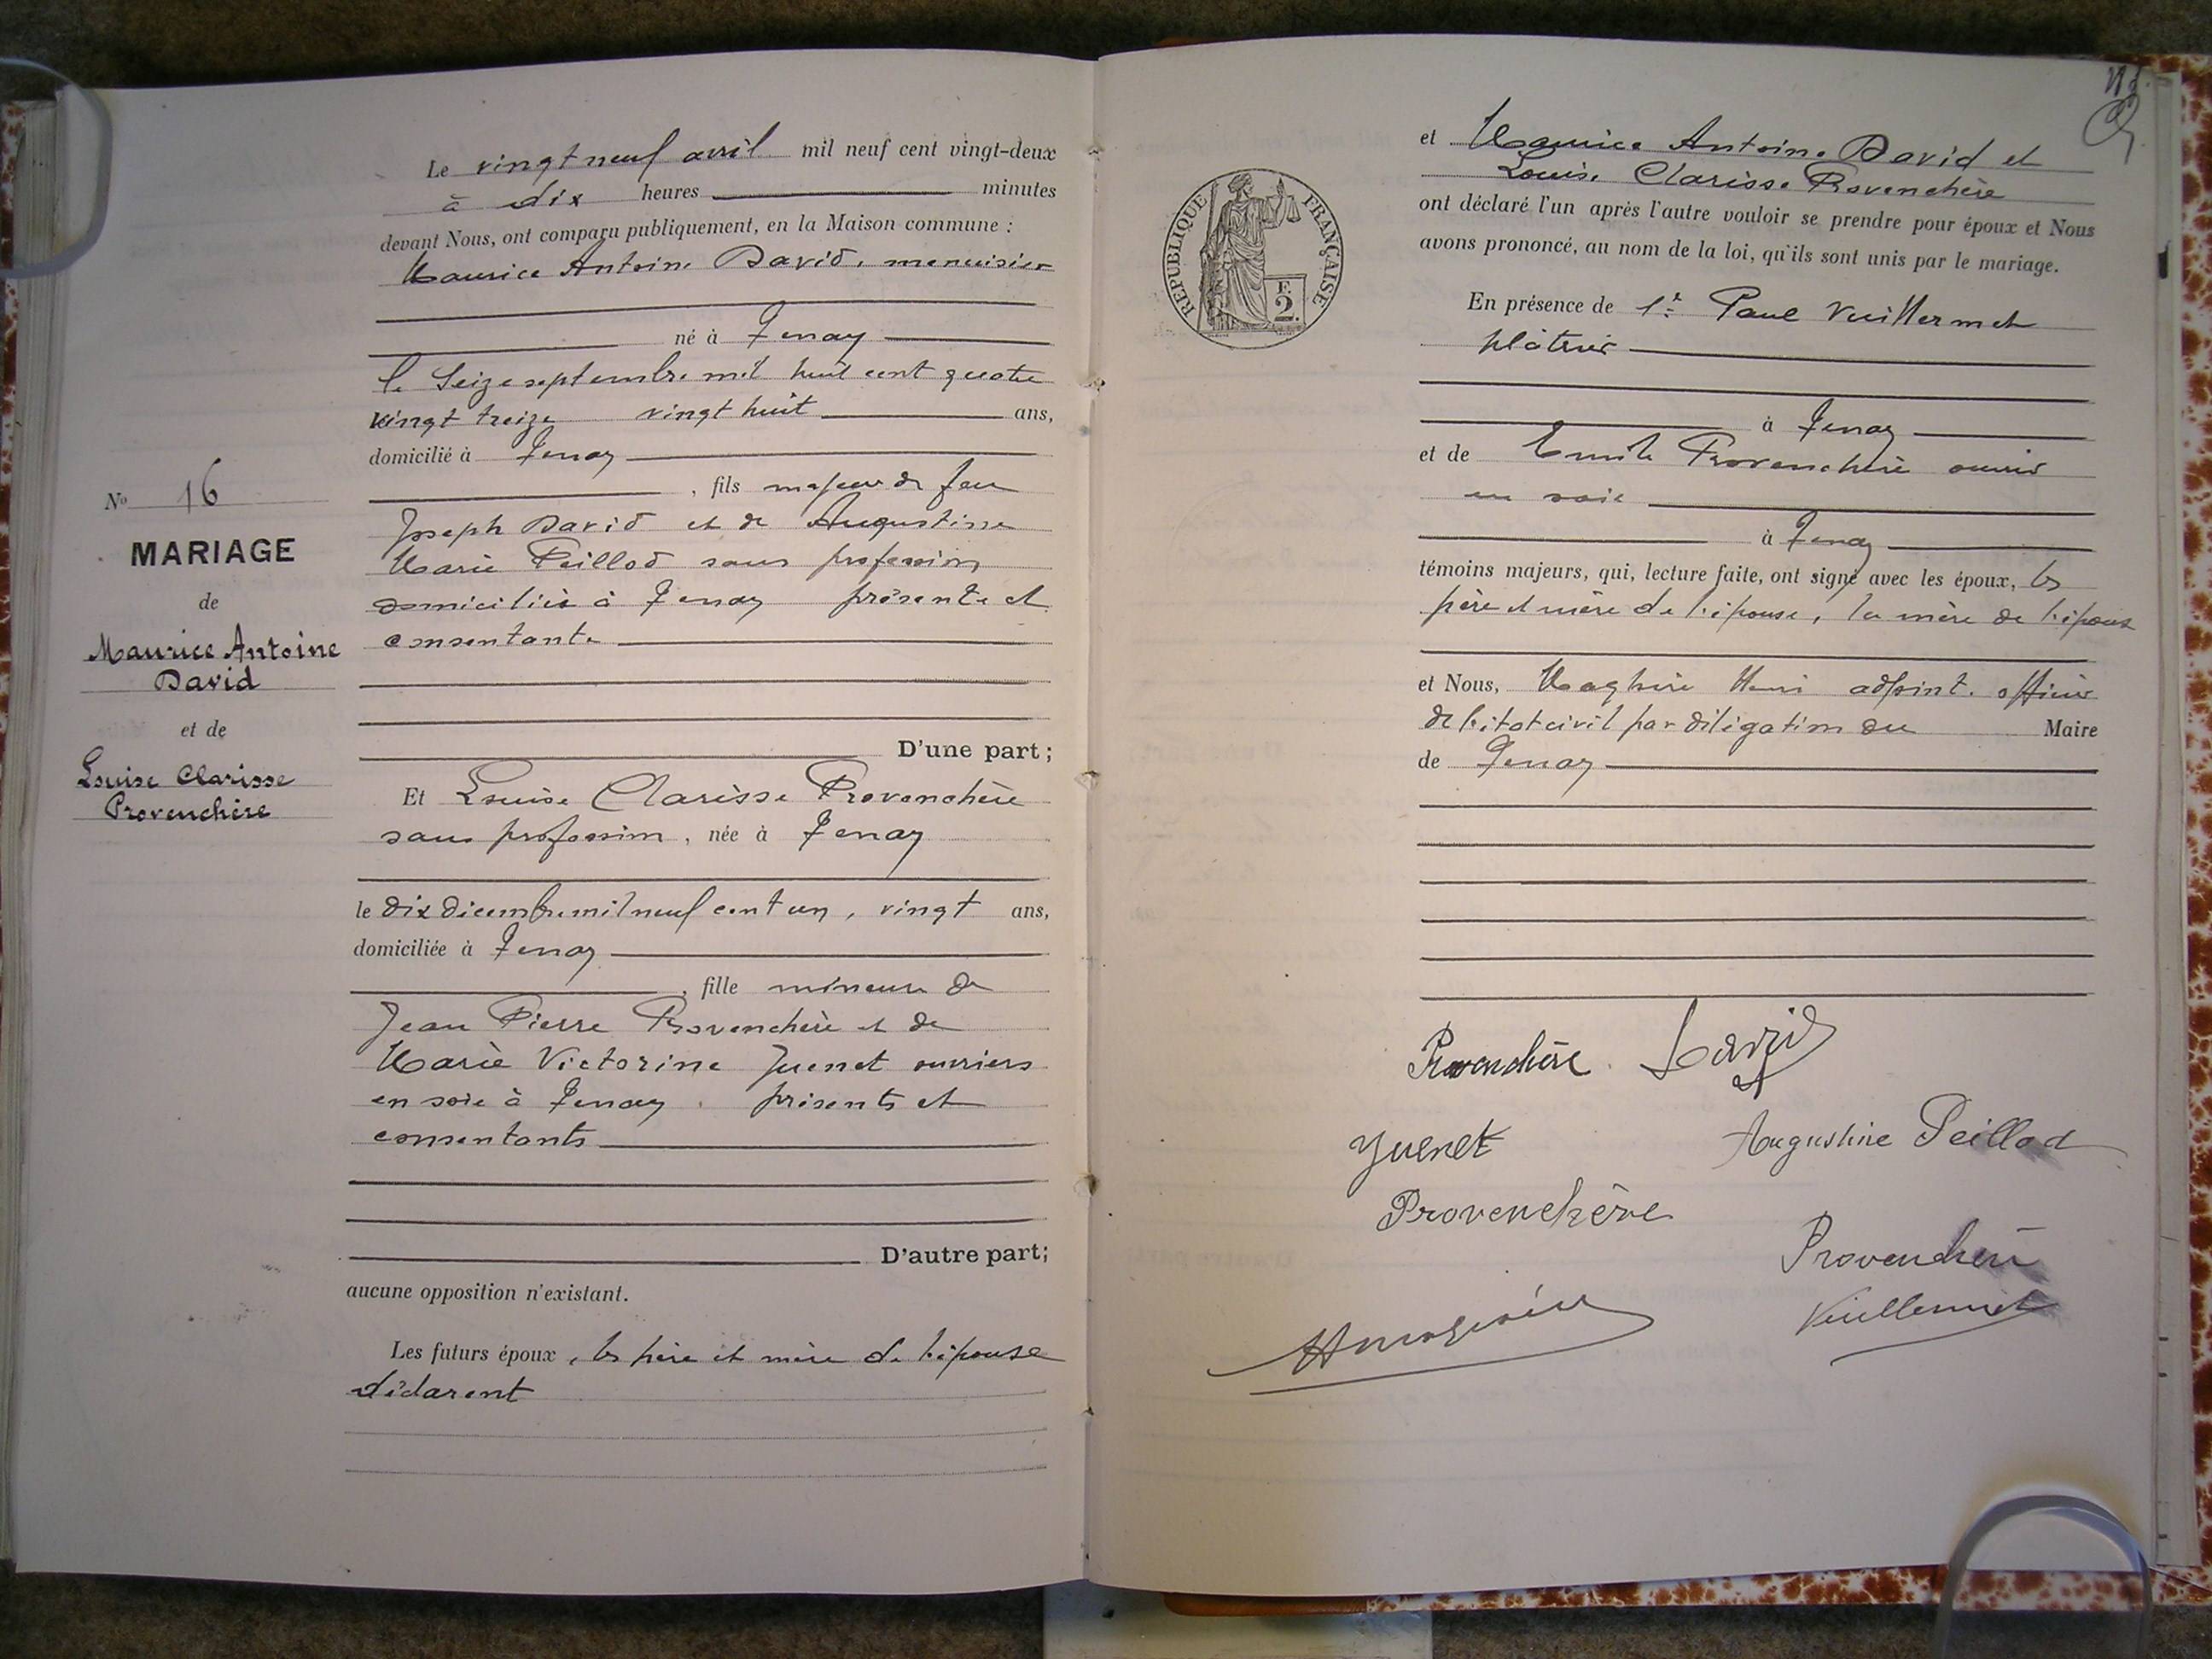 Le vingt neuf avril mil neuf cent vingt-deux
à dix heures minutes
devant Nous, ont comparu publiquement, en la Maison commune :
Maurice Antoine David, menuisier
né à Tenay
le Seize septembre mil huit cent quatre
vingt treize vingt huit ans,
domicilié à Tenay
, fils majeur de feu
Joseph David et de Augustine
Marie Peillod sans profession
domiciliée à Tenay présente et
consentante
D'une part ;
No 16
MARIAGE
de
Maurice Antoine
David
et de
Louise Clarisse
Provenchère
Et Louise Clarisse Provenchère
sans profession, née à Tenay
le dix décembre mil neuf cent un, vingt ans,
domiciliée à Tenay
, fille mineure de
Jean Pierre Provenchère et de
Marie Victorine Juenet ouvriers
en soie à Tenay présents et
consentants
D'autre part;
aucune opposition n'existant.
Les futurs époux, les père et mère de l'épouse
déclarent
et Maurice Antoine David et
Louise Clarisse Provenchère
ont déclaré l'un après l'autre vouloir se prendre pour époux et Nous
avons prononcé, au nom de la loi, qu'ils sont unis par le mariage.
RÉPUBLIQUE FRANÇAISE
F.
2.
En présence de 1r Paul Vuillermet
plâtrier
à Tenay
et de Emile Provenchère ouvrier
en soie
à Tenay
témoins majeurs, qui, lecture faite, ont signé avec les époux, les
père et mère de l'épouse, la mère de l'époux
et Nous, Henri adjoint officier
de l'état civil par délégation du Maire
de Tenay
Provenchère David
Juenet Augustine Peillod
Provenchère
Provenchère
Vuillermet